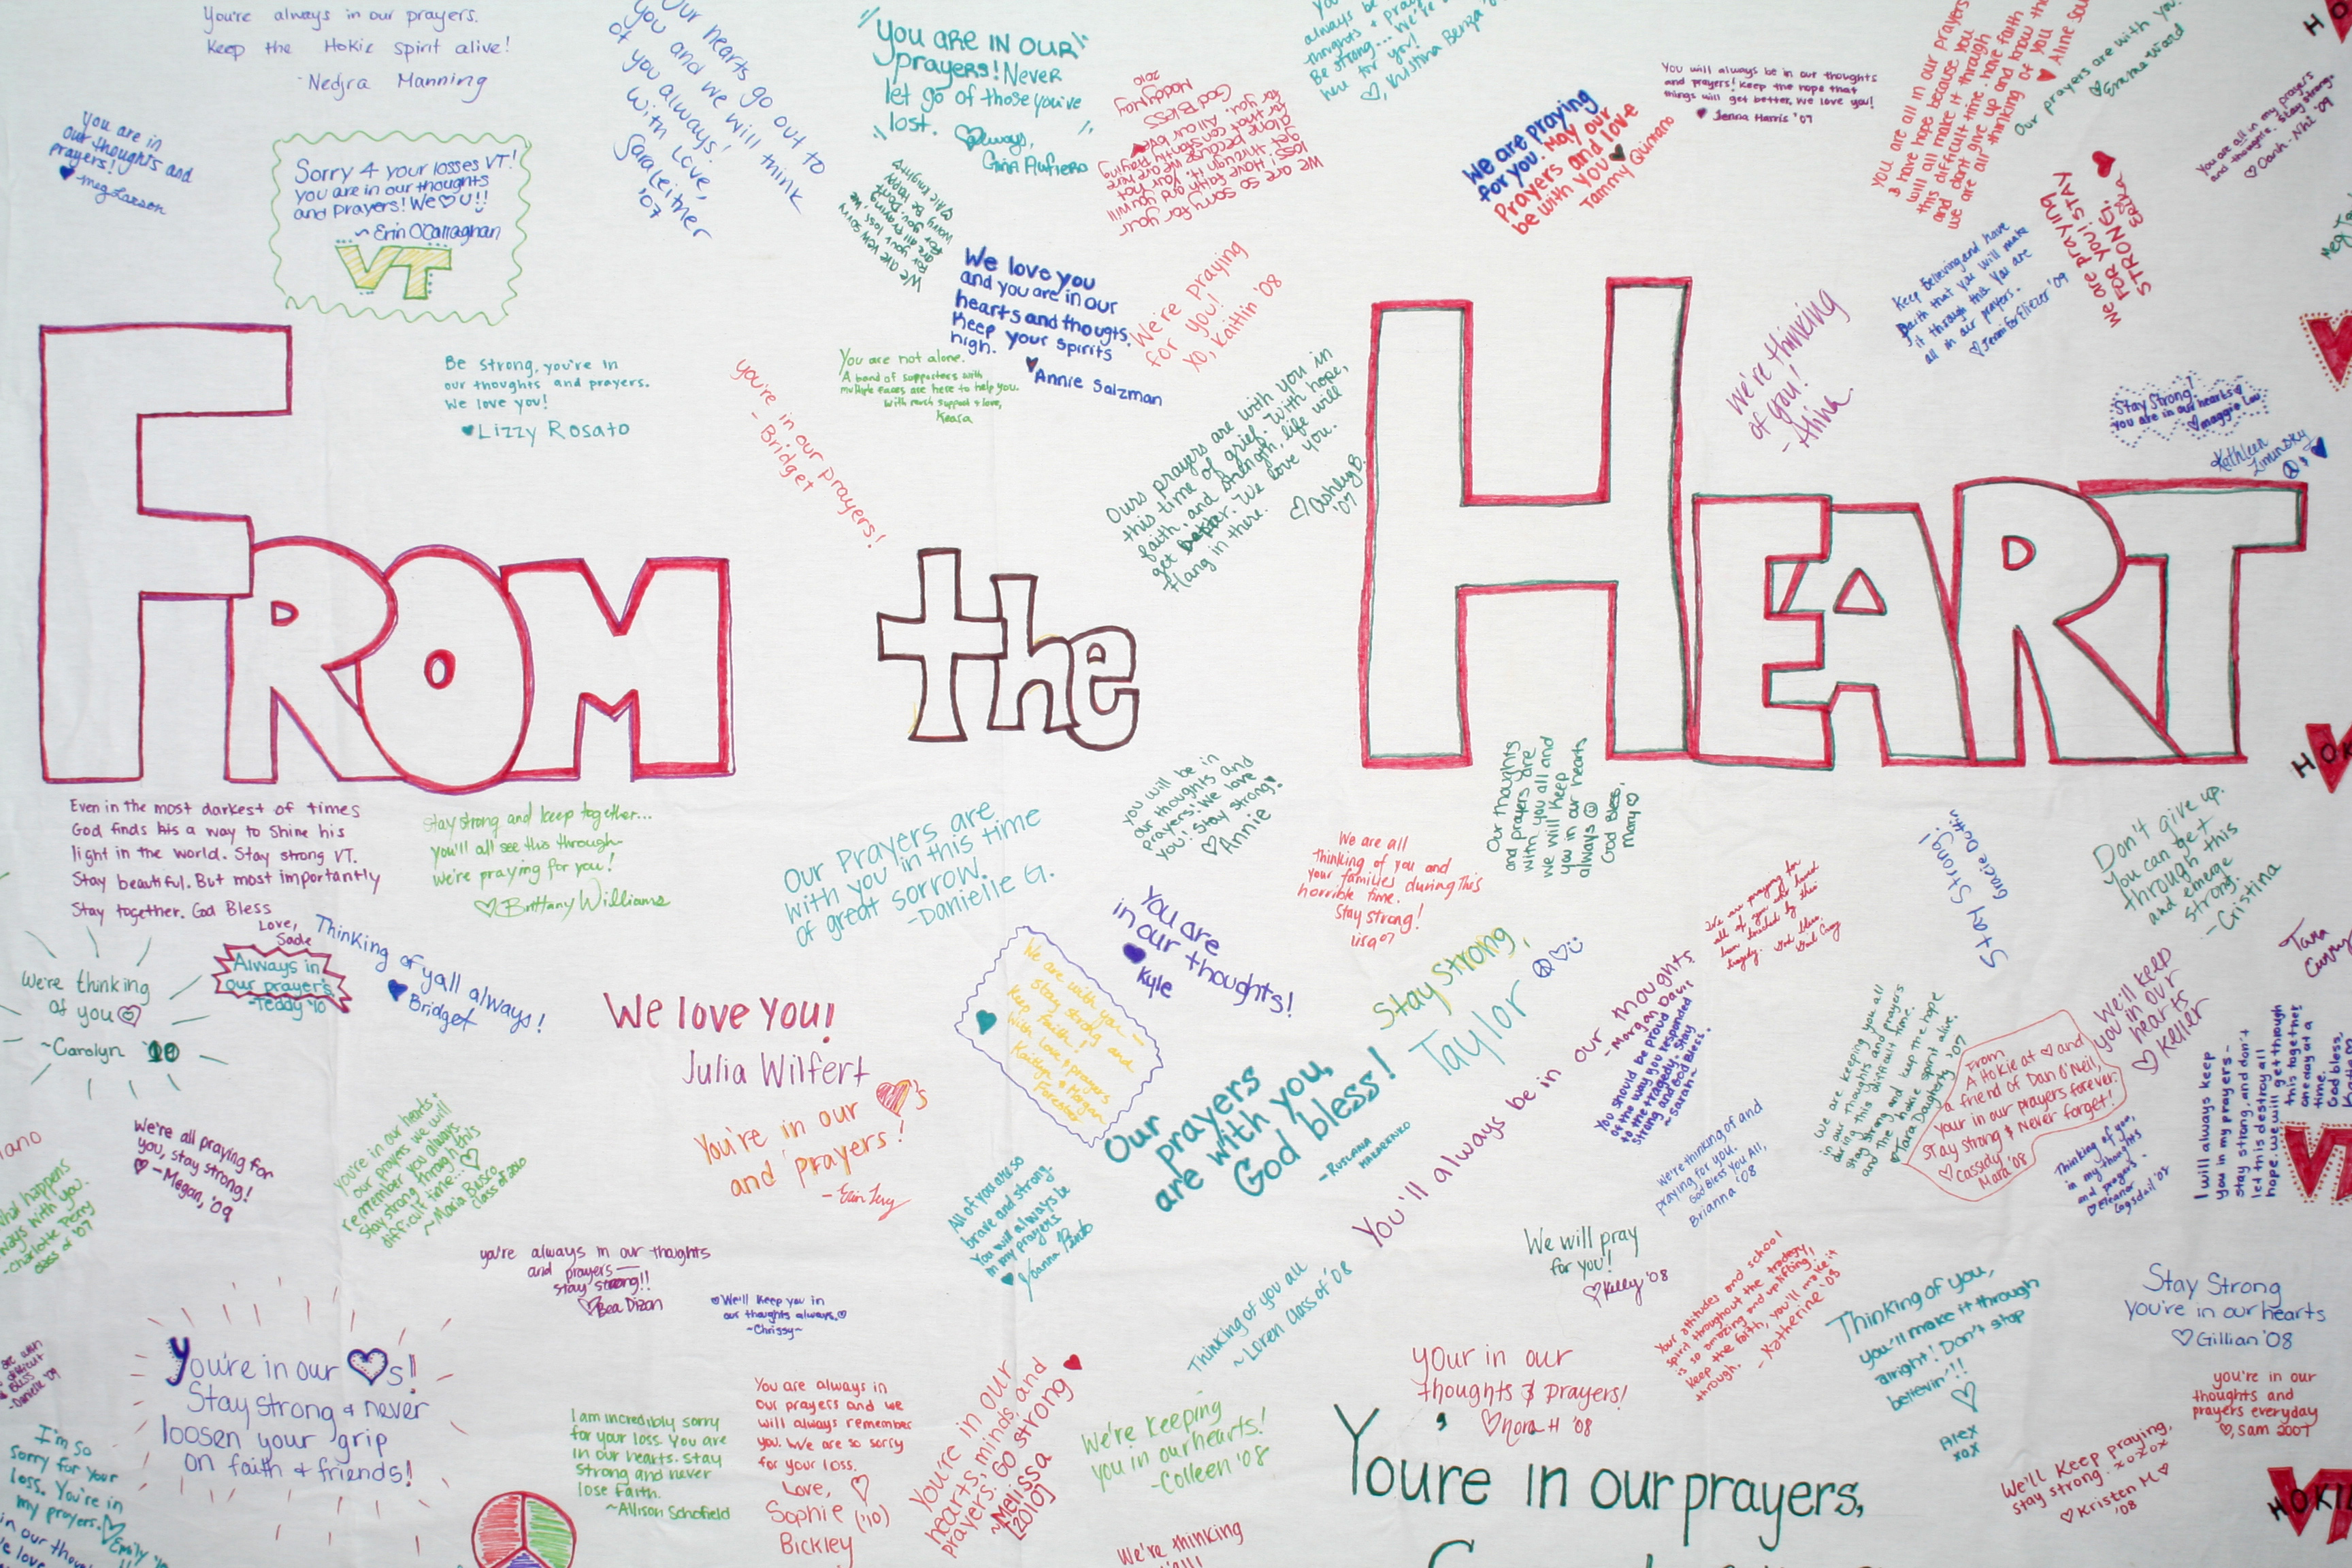 You're always in our prayers.
Keep the Hokie spirit alive!
- Nedjra Manning
You are in
our thoughts and
prayers!
- Meg Larson
Sorry 4 your losses VT!
you are in our thoughts
and prayers! We U!!
~ Erin O'Callaghan
VT
Our hearts go out to
you and we will think
of you always!
With Love,
Sara Leitner
'07
YOU ARE IN OUR
prayers! Never
let go of those you've
lost.
Always,
Gina Aufiero
We are so sorry for your
God Bless
2010
always be
thoughts + prayers
Be strong... we're
here for you!
Kristina Benza
We are praying
for you. May our
Prayers and love
be with you
Tammy Quirano
You will always be in our thoughts
and prayers! Keep the hope that
things will get better, we love you!
Jenna Harris '07
you are all in our prayers
have hope because you
will all make it through
this difficult time. have faith
and don't give up and know that
we are all thinking of you
Our prayers are with you.
Emma Ward
You are all in my prayers
and thoughts. Stay strong.
'09
We are praying
FOR YOU! STAY
STRONG.
Erika
Keep Believing and have
faith that you will make
it through this. You are
all in our prayers.
Jennifer Eliezer '09
We love you
and you are in our
hearts and thougts.
Keep your spirits
high.
Annie Salzman
We're praying
for you!
xo, Kaitlin '08
Be strong, you're in
our thoughts and prayers.
We love you!
Lizzy Rosato
You are not alone.
A band of supporters with
multiple faces are here to help you.
With much support & love,
Keara
you're in our prayers!
- Bridget
Ours prayers are with you in
this time of grief. With hope,
faith, and strength, life will
get better. We love you.
Hang in there.
Ashley B.
'07
We're thinking
of you!
- Alina
Stay Strong!
you are in our hearts
maggie Lau
Kathleen
Limunsky
FROM the HEART
Even in the most darkest of times
God finds his a way to shine his
light in the world. Stay strong VT.
Stay beautiful. But most importantly
Stay together. God Bless
Love,
Sade
Stay strong and keep together...
you'll all see this through-
We're praying for you!
Brittany Williams
Our prayers are
with you in this time
of great sorrow.
-Danielle G.
you will be in
our thoughts and
prayers! We love
you! Stay strong!
Annie
We are all
thinking of you and
your families during this
horrible time.
Stay strong!
Lisa 07
Our thoughts
and prayers are
with you all and
we will keep
you in our hearts
always
God Bless,
Mary
We are praying for
all of you who loved
been touched by this
tragedy. God bless.
Stay Strong!
Gracie Dattin
Don't give up.
You can get
through this
and emerge
strong.
-Cristina
Tara
We're thinking
of you
~Carolyn '10
Always in
our prayers
-Teddy '10
Thinking of yall always!
Bridget
We love you!
Julia Wilfert
You are
in our thoughts!
Kyle
We are with you—
stay strong and
keep faith!
With love & prayers
Kaitlyn & Morgan
Forester
Stay strong,
Taylor
Our
prayers
are with you,
God bless!
-Ruslana
Makarenko
You'll always be in our thoughts
- Morgan Davis
You should be proud
of the way you responded
to the tragedy. Stay
strong and God Bless.
~Sarah~
We are keeping you all
in our thoughts and prayers
during this difficult time.
Stay strong and keep up the hope
and the Hokie spirit alive.
Tara Daugherty '07
From
A Hokie at and
a friend of Dan O'Neil,
Your in our prayers forever.
Stay strong & Never forget!
Cassidy
Mara '08
We'll keep
you in our
hearts
Keller
I will always keep
you in my prayers-
stay strong, and don't
let this destroy all
hope. we will get through
this together
one day at a
time.
God bless,
We're all praying for
you, stay strong!
- Megan, '09
You're in our hearts +
our prayers we will
remember you always.
Stay strong through this
difficult time.
~Maria Brisco
class of 2010
You're in our 's
and prayers!
- Erin Levy
All of you are so
brave and strong.
You will always be
in my prayers
Joanna
We're thinking of and
praying for you.
God Bless You All,
Brianna '08
Thinking of you,
in my thoughts
and prayers -
Eleanor
Logsdail '07
what happens
ways with you.
-Charlotte Perry
class of '07
you're always in our thoughts
and prayers—
stay strong!!
Bea Dizon
We'll keep you in
our thoughts always.
~Chrissy~
We will pray
for you!
Kelly '08
Thinking of you all
~Loren Class of '08
Your attitudes and school
spirit throughout the tradegy,
is so amazing and uplifting.
Keep the faith, you'll make it
through.
- Katherine '08
Thinking of you,
you'll make it through
alright! Don't stop
believin'!!
Alex
xox
Stay Strong
You're in our hearts
Gillian '08
You're in our s!
Stay strong & never
loosen your grip
on faith & friends!
I'm so
sorry for your
loss. You're in
my prayers.
Emily
I am incredibly sorry
for your loss. You are
in our hearts. Stay
strong and never
lose faith.
~Allison Schofield
You are always in
our prayers and we
will always remember
you. We are so sorry
for your loss.
Love,
Sophie ('10)
Bickley
You're in our
hearts, minds, and
prayers. Go strong
~Melissa
[2010]
We're keeping
you in our hearts!
-Colleen '08
your in our
thoughts & prayers!
Nora H '08
You're in our prayers,
you're in our
thoughts and
prayers everyday
, Sam 2007
We'll keep praying,
stay strong. xoxox
Kristen M.
'08
We're thinking
VT
HOKI